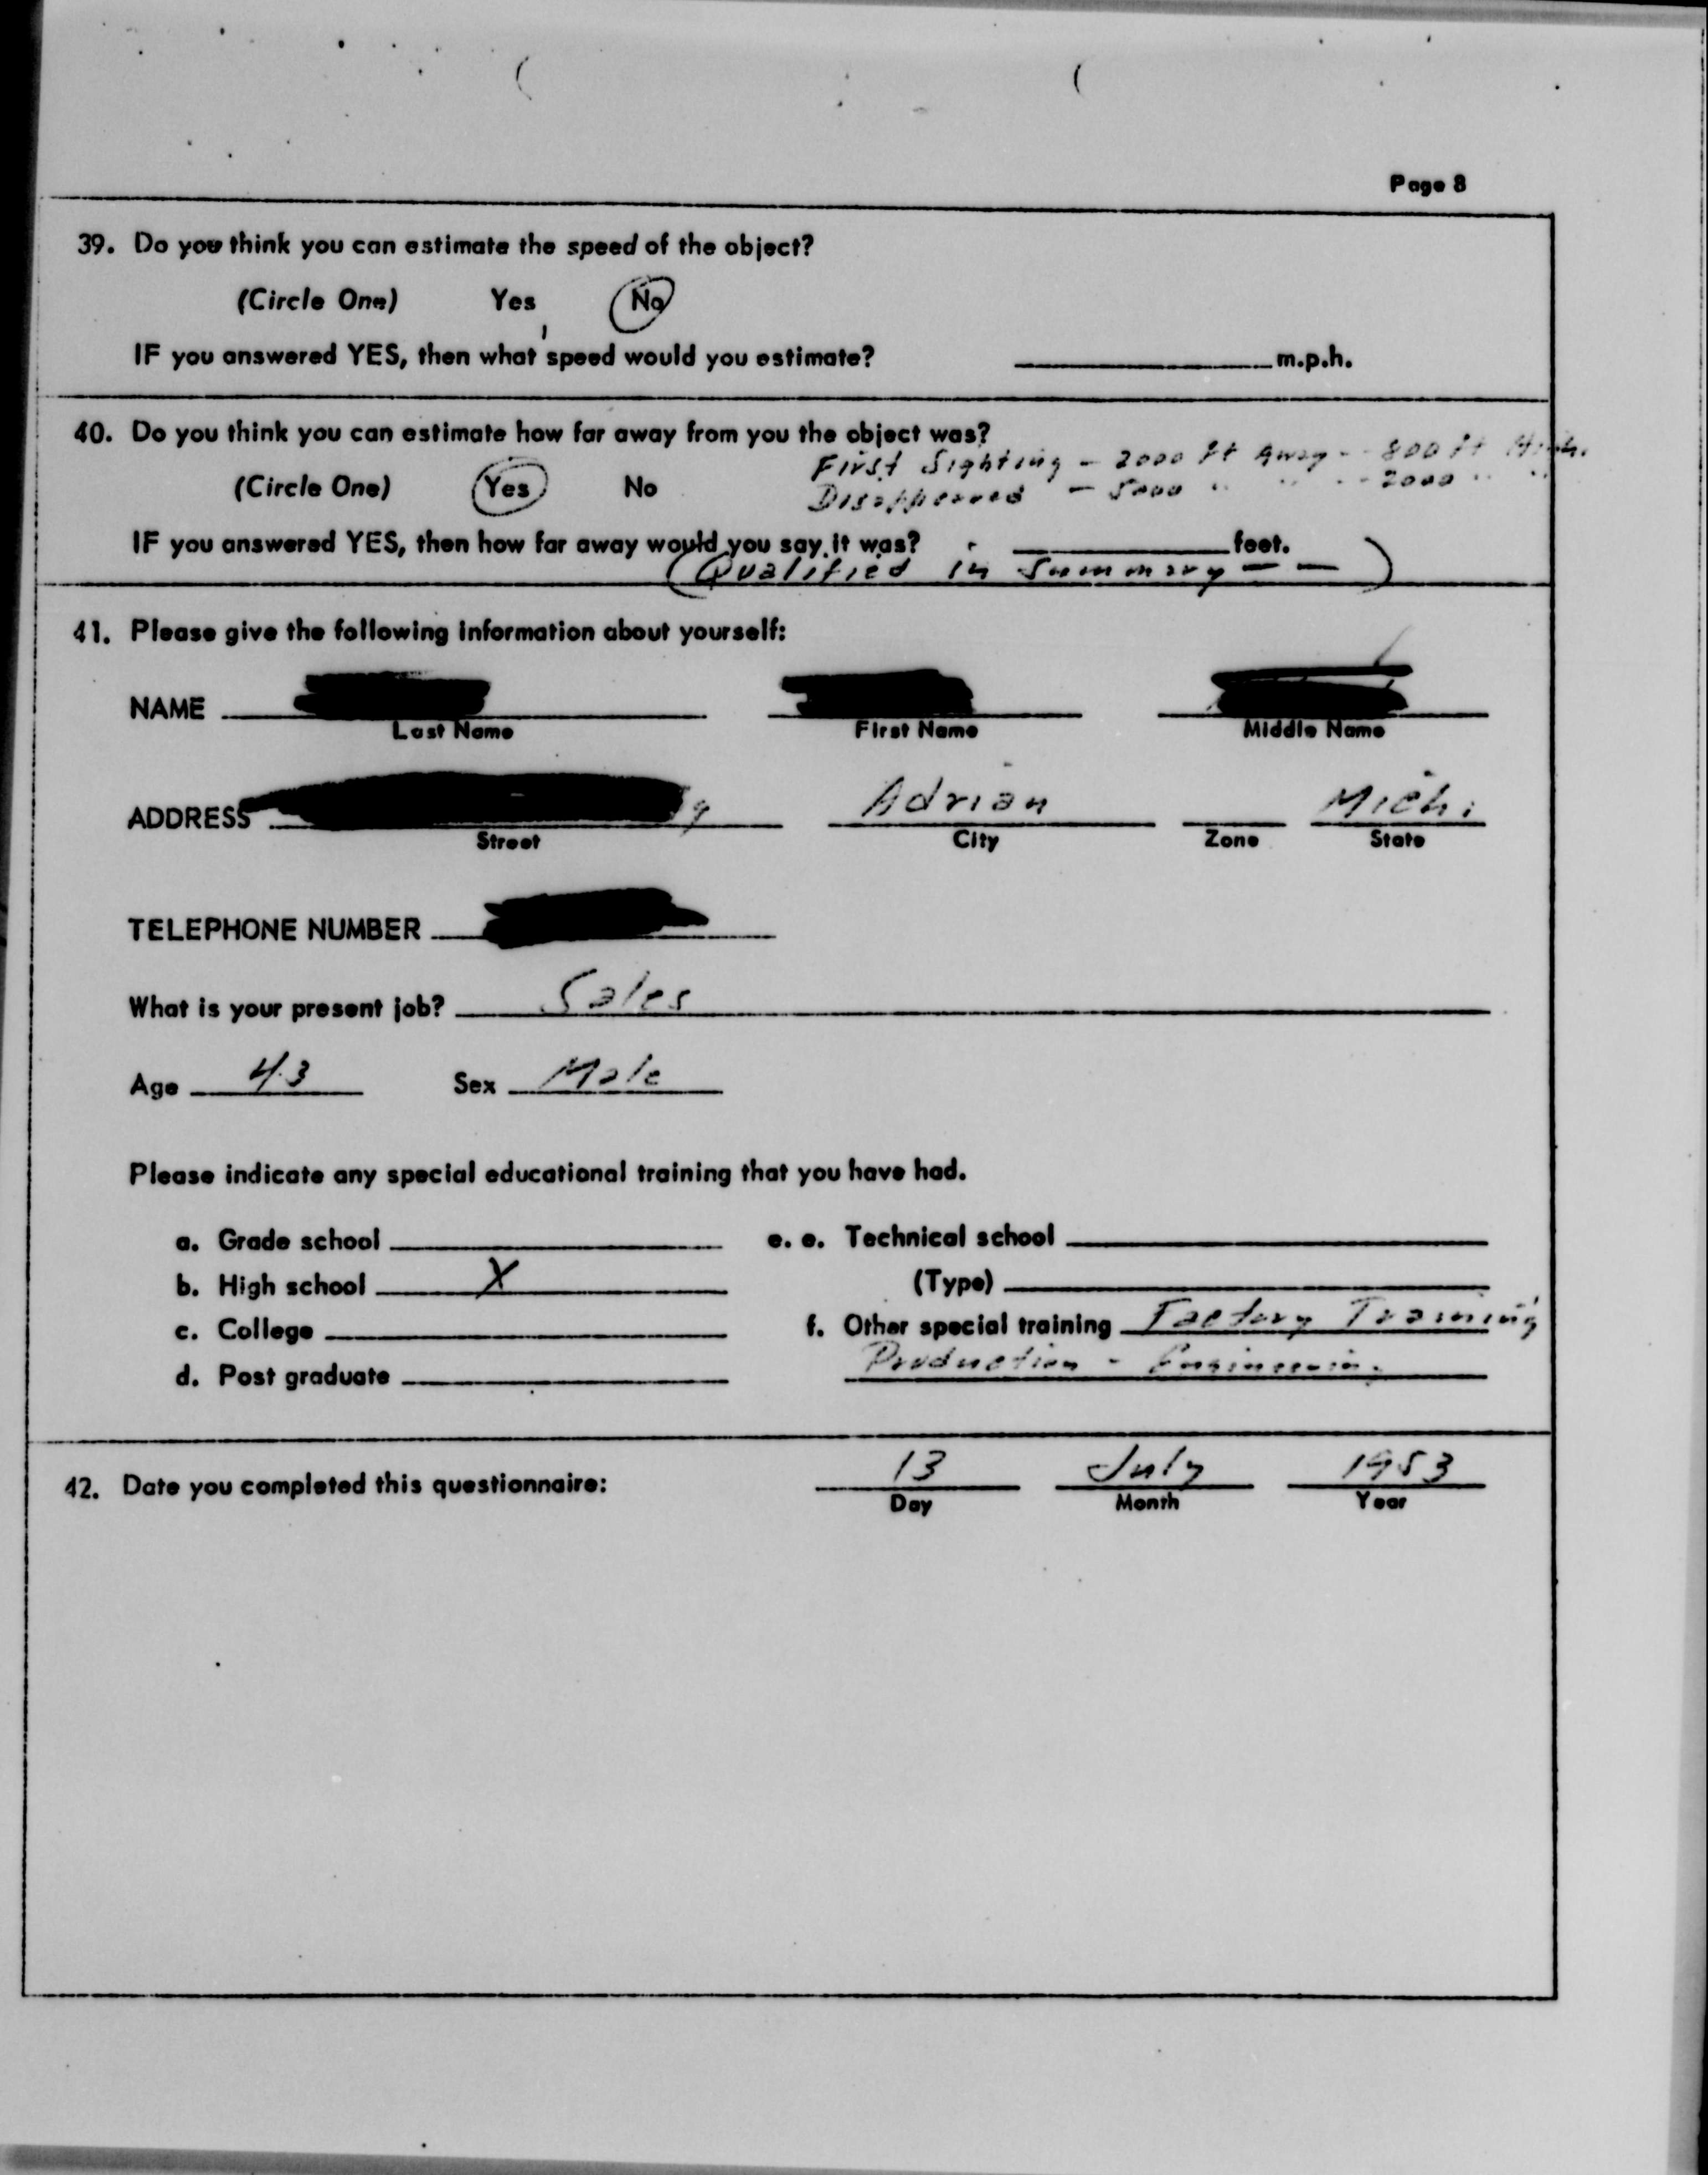 Page 8
39. Do you think you can estimate the speed of the object?
(Circle One) Yes No
IF you answered YES, then what speed would you estimate? m.p.h.
40. Do you think you can estimate how far away from you the object was?
First Sighting - 2000 ft Away - - 800 ft High.
(Circle One) Yes No
Disappeared - 5000 " " - - 2000 " "
IF you answered YES, then how far away would you say it was? feet.
(Qualified in Summary - - )
41. Please give the following information about yourself:
NAME
Last Name First Name Middle Name
ADDRESS Adrian Mich.
Street City Zone State
TELEPHONE NUMBER
What is your present job? Sales
Age 43 Sex Male
Please indicate any special educational training that you have had.
a. Grade school e. e. Technical school
b. High school X (Type)
c. College f. Other special training Factory Training
d. Post graduate Production - Engineering
42. Date you completed this questionnaire: 13 July 1953
Day Month Year